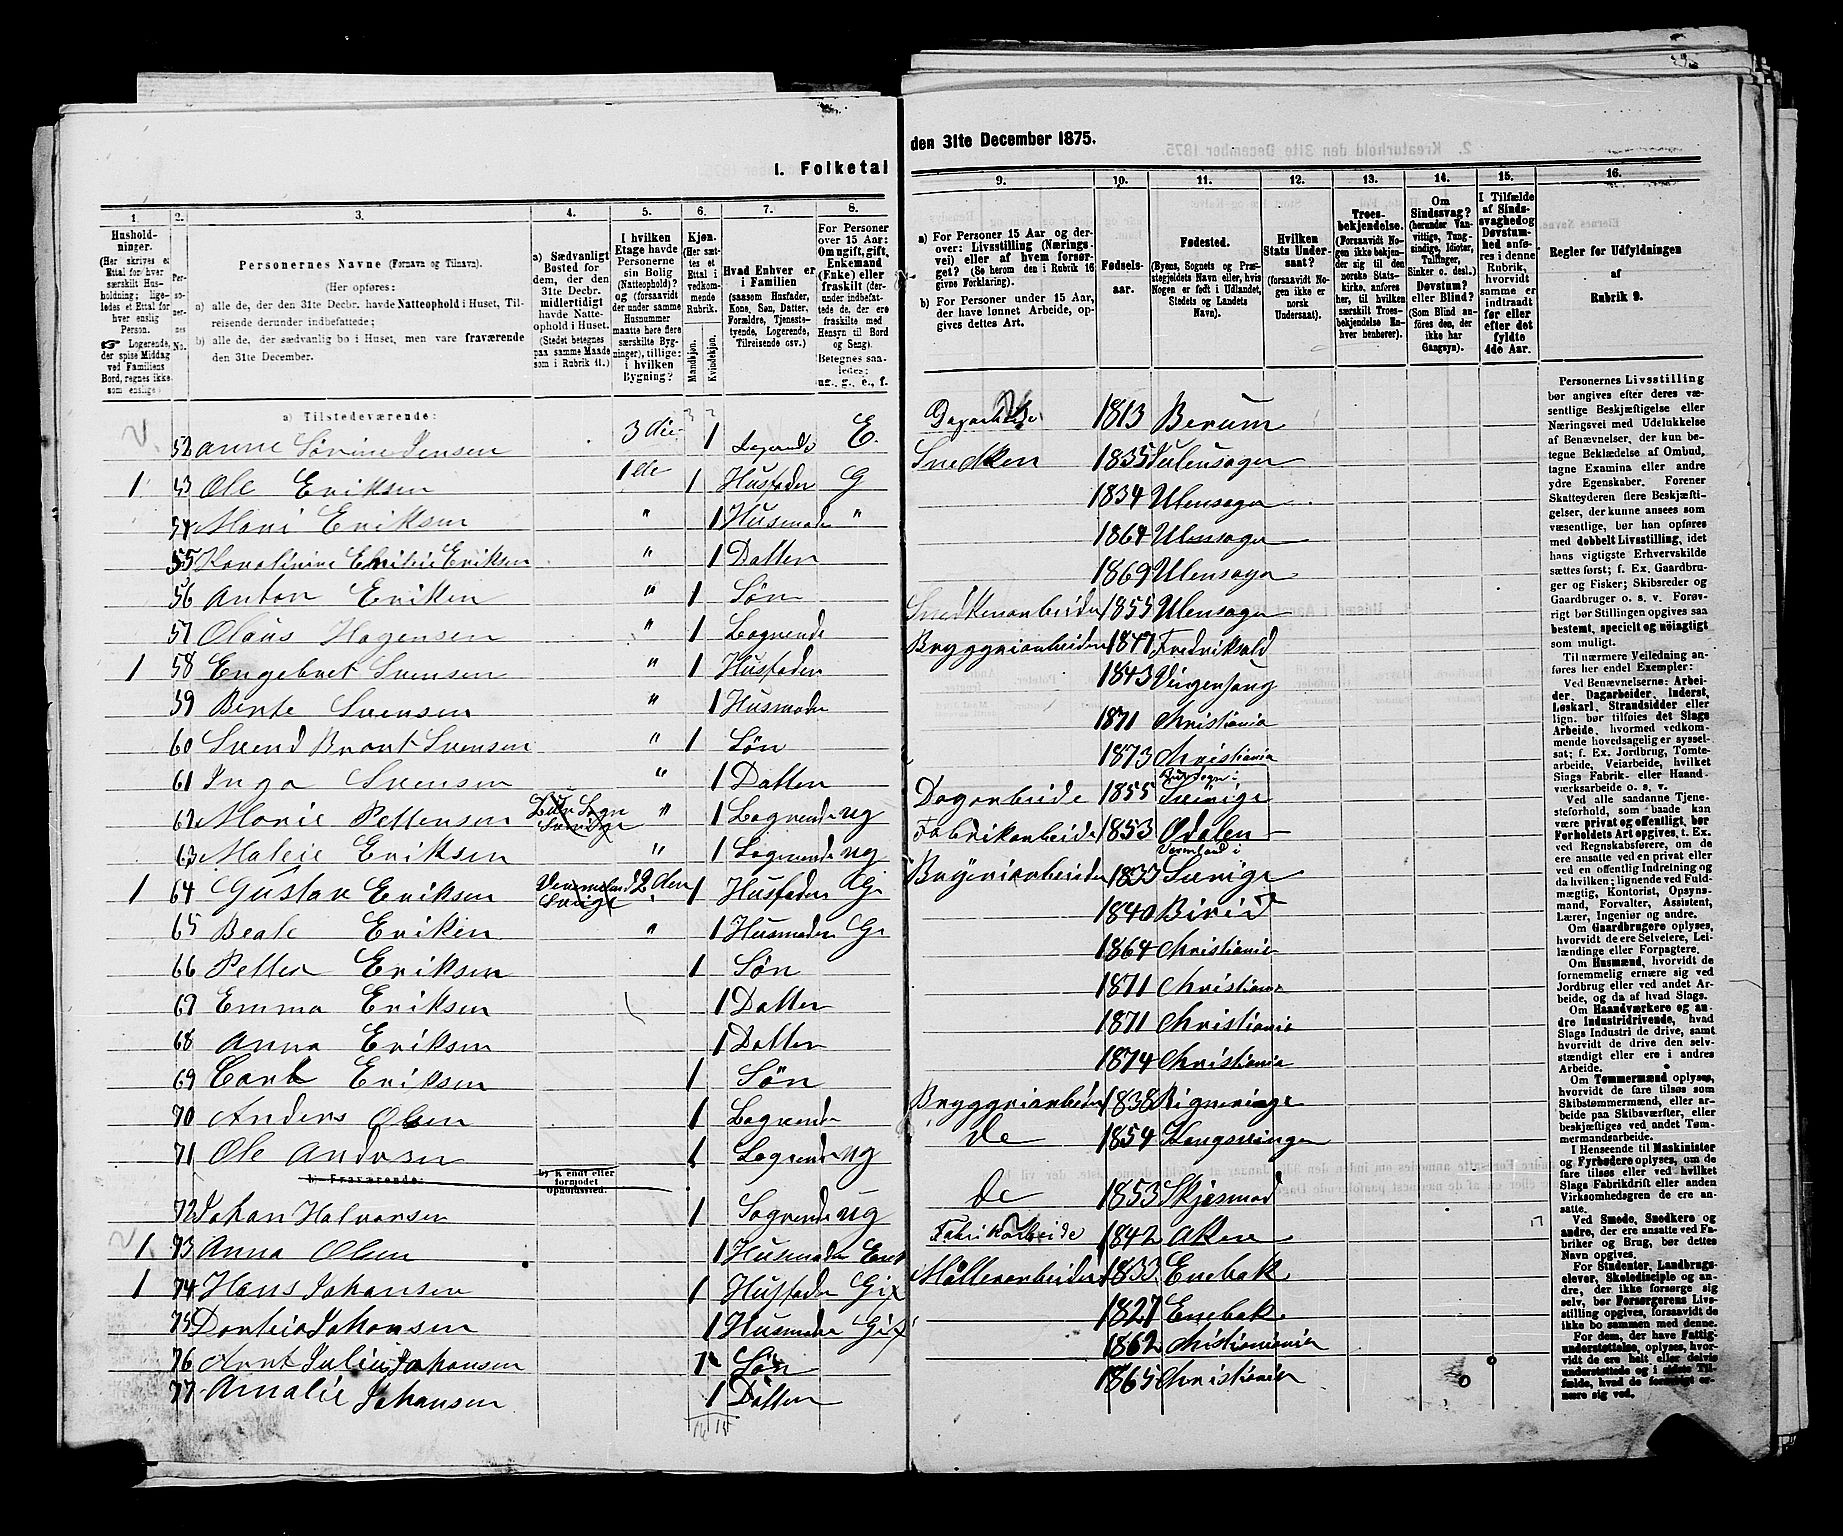 1. Folketal
den 31te December 1875.
1. 2. 3. 4. 5. 6. 7. 8.
9. 10. 11. 12. 13. 14. 15. 16.
Hushold-
ninger.
(Her skrives et
Ettal for hver
særskilt Hus-
holdning; lige-
ledes et Ettal for
hver enslig
Person.
☞ Logerende,
der spise Middag
ved Familiens
Bord, regnes ikke
som enslige.)
Per-
so-
ner-
nes
No.
Personernes Navne (Fornavn og Tilnavn).
(Her opføres:
a) alle de, der den 31te Decbr. havde Natteophold i Huset, Til-
reisende derunder indbefattede;
b) alle de, der sædvanlig bo i Huset, men vare fraværende
den 31te December.
a) Sædvanligt
Bosted for
dem, der den
31te Decbr.
midlertidigt
havde Natte-
ophold i Huset.
(Stedet betegnes
paa samme Maade
som i Rubrik 11.)
I hvilken
Etage havde
Personerne
sin Bolig
(Natteophold)?
og (forsaavidt
der under samme
Husnummer
maatte høre flere
særskilte Byg-
ninger), tillige:
i hvilken
Bygning?
Kjøn.
(Her sæt-
tes et
Ettal i
vedkom-
mende
Rubrik.)
Mandkjøn. Kvindekjøn.
Hvad Enhver er
i Familien
(saasom Husfader,
Kone, Søn, Datter,
Forældre, Tjeneste-
tyende, Logerende,
Tilreisende osv.)
For Personer
over 15 Aar:
Om ugift, gift,
Enkemand
(Enke) eller
fraskilt (der-
under indbefat-
tede de, der ere
fraskilte med
Hensyn til Bord
og Seng).
Betegnes saa-
ledes:
ug., g., e., f.
a) For Personer 15 Aar og der-
over: Livsstilling (Nærings-
vei) eller af hvem forsør-
get? (Se herom den i Rubrik 16
givne Forklaring).
b) For Personer under 15 Aar,
der have lønnet Arbeide, op-
gives dettes Art.
Fødsels-
aar.
Fødested.
(Byens, Sognets og Præ-
stegjeldets Navn eller, hvis
Nogen er født i Udlandet,
Stedets og Landets
Navn).
Hvilken
Stats Under-
saat?
(forsaavidt No-
gen ikke er
norsk
Undersaat).
Troes-
bekjendelse.
(Forsaavidt No-
gen ikke bekjen-
der sig til den
norske Stats-
kirke, anføres
her, til hvilken
særskilt Troes-
bekjendelse En-
hver henhører).
Om
Sindssvag?
(herunder Van-
vittige, Tung-
sindige, Idioter,
Tullinger,
Sinker o. desl.)
Døvstum?
eller Blind?
(Som Blind an-
føres den, der
ikke har
Gangsyn).
I Tilfælde
af Sinds-
svaghed og
Døvstum-
hed anfø-
res i denne
Rubrik,
hvorvidt
samme er
indtraadt
før eller
efter det
fyldte
4de Aar.
Regler for Udfyldningen
af
Rubrik 9.
a) Tilstedeværende:
52 Anne Sørine Jensen 3die 1 Logerende E. Dagarbeide 1813 Berum
1 53 Ole Eriksen 1de 1 Husfader G Snedker 1835 Ullensager
54 Mari Eriksen " 1 Husmoder " 1834 Ulensager
55 Karolinine Emilie Eriksen " 1 Datter 1864 Ulensager
56 Anton Eriksen " 1 Søn 1869 Ulensager
57 Olaus Hagensen " 1 Logrende Snedkerarbeider 1855 Ulensager
1 58 Engebret Svensen " 1 Husfader Bryggriarbeider 1847 Fredriksald
59 Berte Svensen " 1 Husmoder 1843
60 Svend Brant Svensen " 1 Søn 1871 Christiania
61 Inga Svensen " 1 Datter 1873 Christiania
62 Marie Pettersen Sverige " 1 Logrende ug Dagarbeide 1855 Sverige
63 Malene Eriksen " 1 Logrende ug Fabrikarbeide 1853 Odalen
1 64 Gustav Eriksen Vermeland Sverige 2den 1 Husfader G. Bryeriarbeider 1833 Vermland i Sverige
65 Beate Eriksen " 1 Husmoder G. 1840 Birid
66 Petter Eriksen 1 Søn 1864 Christiania
67 Emma Eriksen 1 Datter 1871 Christiania
68 Anna Eriksen 1 Datter 1871 Christiania
69 Carl Eriksen 1 Søn 1874 Christiania
70 Anders Olsen 1 Logrende Bryggriarbeider 1838 Rigneringe
71 Ole Andersen 1 Logrende ug De 1854 Kongsvinger
b) Fraværende:
b) Kjendt eller
formodet
Opholdssted.
72 Johan Halvorsen 1 Logrende ug De 1853 Skjesmod
1 73 Anna Olsen 1 Husmoder Enk Fabrikarbeide 1842 Aker
1 74 Hans Johansen 1 Husfader Gif Møllerarbeider 1833 Enebak
75 Dorteia Johansen 1 Husmoder Gif 1827 Enebak
76 Arnt Julius Johansen 1 Søn 1862 Christianinia
77 Amalie Johansen 1 Datter 1865 Christiania
Personernes Livsstilling
bør angives efter deres væ-
sentlige Beskjæftigelse eller
Næringsvei med Udelukkelse
af Benævnelser, der kun be-
tegne Beklædelse af Ombud,
tagne Examina eller andre
ydre Egenskaber. Forener
Skatteyderen flere Beskjæfti-
gelser, der kunne ansees som
væsentlige, bør han opføres
med dobbelt Livsstilling, idet
hans vigtigste Erhvervskilde
sættes først; f. Ex. Gaardbru-
ger og Fisker; Skibsreder og
Gaardbruger o. s. v. Forøv-
rigt bør Stillingen opgives saa
bestemt, specielt og nøiagtigt
som muligt.
Til nærmere Veiledning an-
føres her endel Exempler:
Ved Benævnelserne: Arbei-
der, Dagarbeider, Inderst,
Løskarl, Strandsidder eller
lign. bør tilføies det Slags
Arbeide, hvormed vedkom-
mende hovedsagelig er syssel-
sat; f. Ex. Jordbrug, Tomte-
arbeide, Veiarbeide, hvilket
Slags Fabrik- eller Haand-
værksarbeide o. s. v.
Ved alle saadanne Tjene-
steforhold, som baade kan
være privat og offentligt, bør
Forholdets Art opgives, t. Ex.
ved Regnskabsførere, om de
ere ansatte ved en privat eller
ved en offentlig Indretning og
da hvilken; lignende ved Fuld-
mægtig, Kontorist, Opsyns-
mand, Forvalter, Assistent,
Lærer, Ingeniør og andre.
Om Gaardbrugere oplyses,
hvorvidt de ere Selveiere, Lei-
lændinge eller Forpagtere.
Om Husmænd, hvorvidt de
fornemmelig ernære sig ved
Jordbrug eller ved andet Ar-
beide, og da af hvad Slags.
Om Haandværkere og an-
dre Industridrivende, hvad
Slags Industri de drive, samt
hvorvidt de drive den selv-
stændigt eller ere i andres
Arbeide.
Om Tømmermænd oplyses,
hvorvidt de fare tilsøs som
Skibstømmermænd, eller ar-
beide paa Skibsværfter, eller
beskjæftiges ved andet Tøm-
mermandsarbeide.
I Henseende til Maskinister
og Fyrbødere oplyses, om de
fare tilsøs eller ved hvilket
Slags Fabrikdrift eller anden
Virksomhedsgren de ere an-
satte.
Ved Smede, Snedkere og
andre, der ere ansatte ved Fa-
briker og Brug, bør dettes
Navn opgives.
For Studenter, Landbrugs-
elever, Skoledisciple og an-
dre, der ikke forsørge sig
selv, bør Forsørgerens Livs-
stilling opgives, forsaavidt de
ikke bo sammen med denne.
For dem, der have Fattig-
understøttelse, oplyses, hvor-
vidt de ere helt eller delvis
understøttede og i sidste Til-
fælde, hvad de forøvrigt er-
nære sig ved.